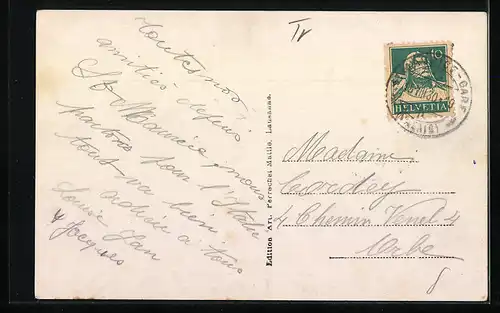 Toutes nos
amitiés depuis
St Maurice, nous
partons pour l'Italie
tout va bien
à tous
Louise Jean
Jacques
Tr
Edition Art. Perrochet Matile, Lausanne.
10
HELVETIA
GARE
Madame
4 Chemin Venel 4
Orbe